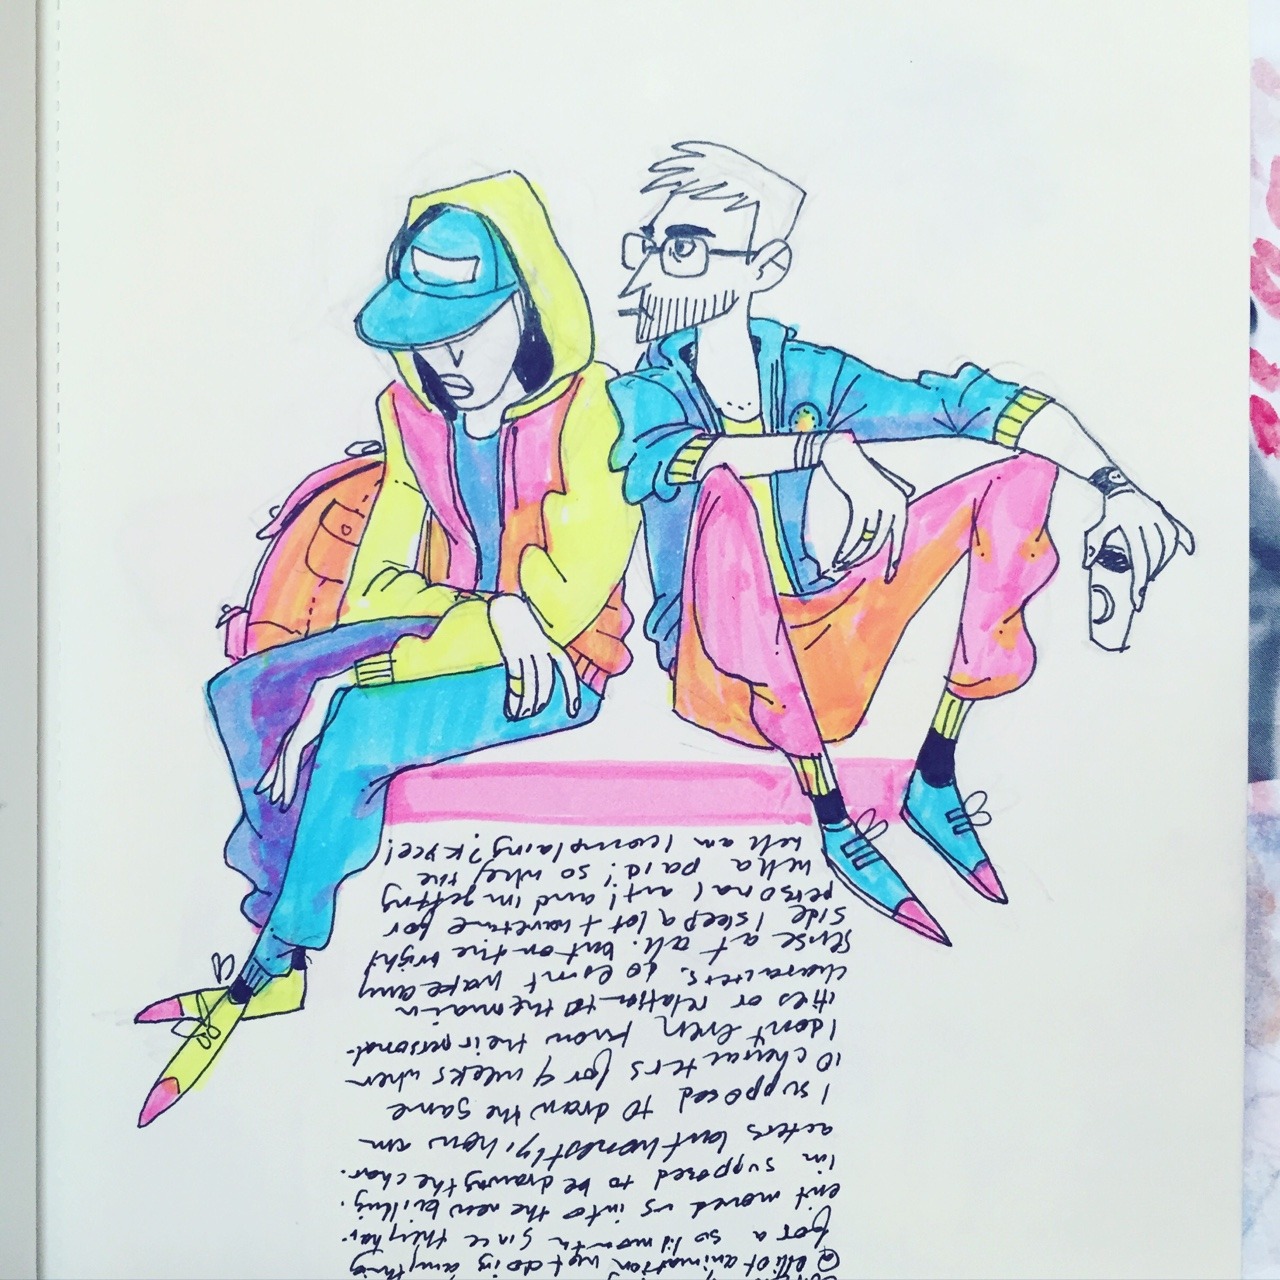 @elliotanimation not doing anything
for a solid month since they hav-
en't moved us into the new builing.
im supposed to be drawing the char-
acters but honestly, how am
I supposed to draw the same
10 characters for 4 weeks when
I dont even know their personal-
ities or relation to the main
characters. doesnt make any
sense at all. but on the bright
side I sleep a lot + have time for
personal art! and im getting
hella paid! so why the
hell am I complaing?